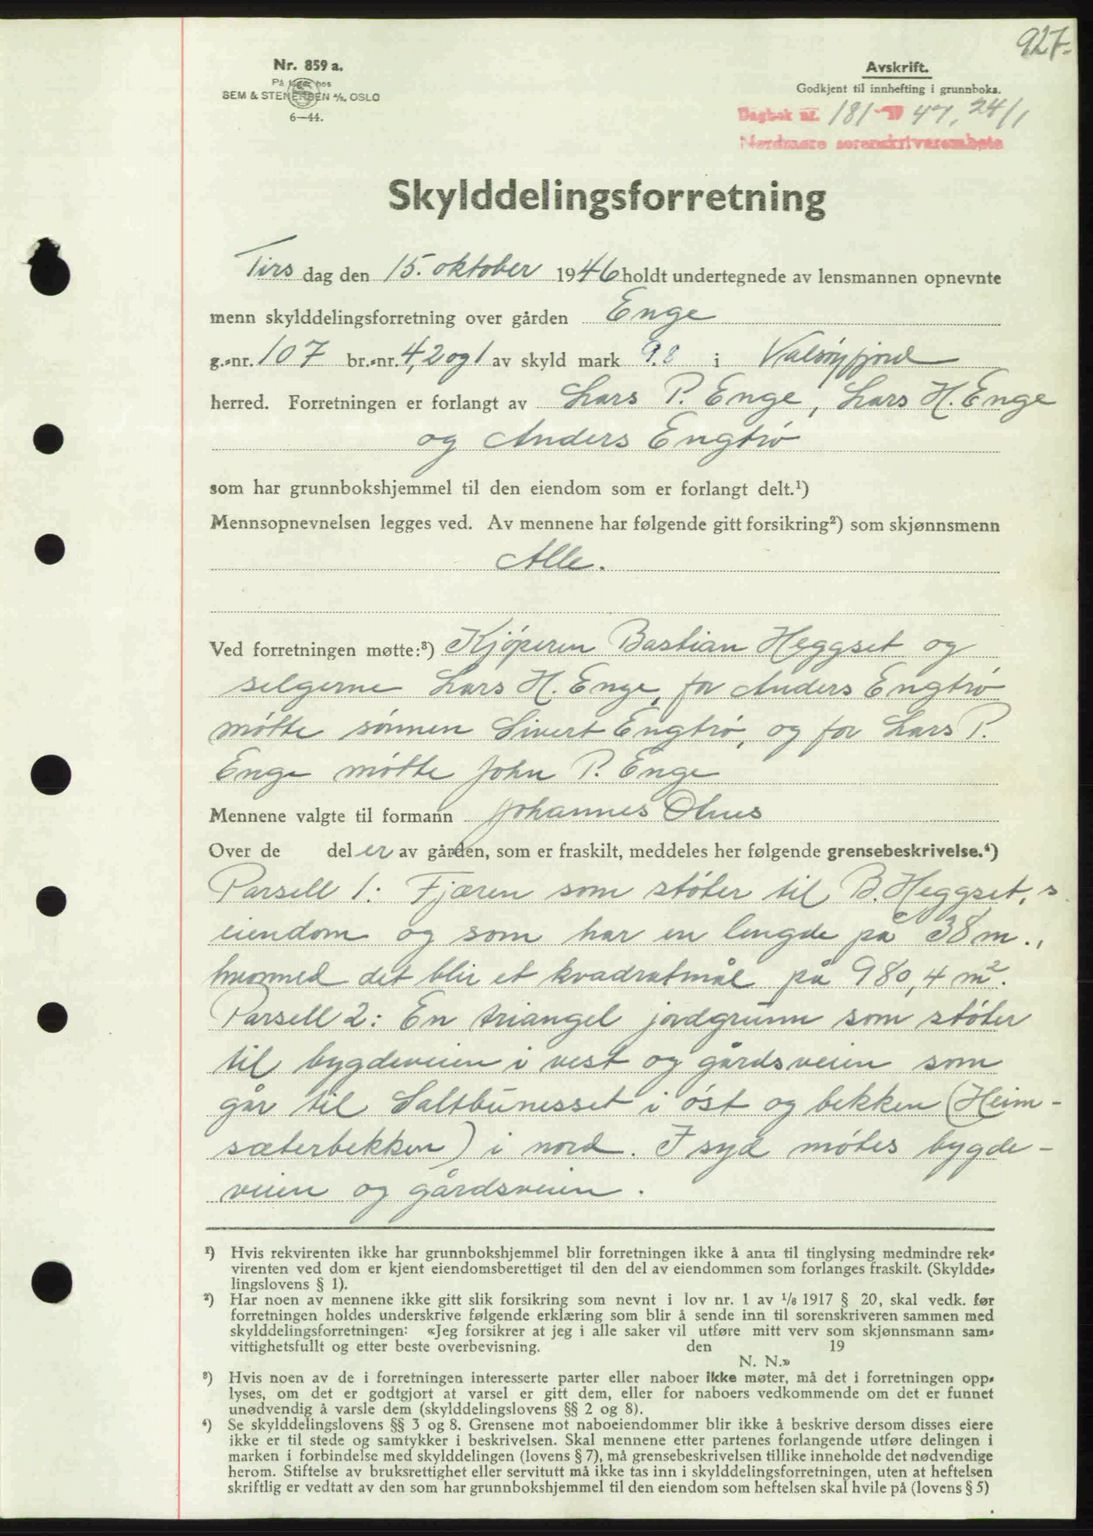 927.
Nr. 859 a.
På lager hos
SEM & STENERSEN A/S, OSLO
6—44.
Avskrift.
Godkjent til innhefting i grunnboka.
Dagbok nr. 181 - 19 47, 24/1
Nordmøre sorenskriverembete
Skylddelingsforretning
Tirs dag den 15. oktober 1946 holdt undertegnede av lensmannen opnevnte
menn skylddelingsforretning over gården Enge
g.-nr. 107 br.-nr. 4,2 og 1 av skyld mark 9.8 i Valsøyfjord
herred. Forretningen er forlangt av Lars P. Enge, Lars H. Enge
og Anders Engtrø
som har grunnbokshjemmel til den eiendom som er forlangt delt.¹)
Mennsopnevnelsen legges ved. Av mennene har følgende gitt forsikring²) som skjønnsmenn
Alle.
Ved forretningen møtte:³) Kjøperen Bastian Heggset og
selgerne Lars H. Enge, for Anders Engtrø
møtte sønnen Sivert Engtrø, og for Lars P.
Enge møtte John P. Enge
Mennene valgte til formann Johannes Øhus
Over de del er av gården, som er fraskilt, meddeles her følgende grensebeskrivelse.⁴)
Parsell 1: Fjæren som støter til B. Heggset,s
eiendom og som har en lengde på 38 m.,
hvormed det blir et kvadratmål på 980,4 m².
Parsell 2: En triangel jordgrunn som støter
til bygdeveien i vest og gårdsveien som
går til Saltbunesset i øst og bekken (Heim-
sæterbekken) i nord. I syd møtes bygde-
veien og gårdsveien.
¹) Hvis rekvirenten ikke har grunnbokshjemmel blir forretningen ikke å anta til tinglysing medmindre rek-
virenten ved dom er kjent eiendomsberettiget til den del av eiendommen som forlanges fraskilt. (Skyldde-
lingslovens § 1).
²) Har noen av mennene ikke gitt slik forsikring som nevnt i lov nr. 1 av 1/6 1917 § 20, skal vedk. før
forretningen holdes underskrive følgende erklæring som blir å sende inn til sorenskriveren sammen med
skylddelingsforretningen: «Jeg forsikrer at jeg i alle saker vil utføre mitt verv som skjønnsmann sam-
vittighetsfullt og etter beste overbevisning. den 19
N. N.»
³) Hvis noen av de i forretningen interesserte parter eller naboer ikke møter, må det i forretningen opp-
lyses, om det er godtgjort at varsel er gitt dem, eller for naboers vedkommende om det er funnet
unødvendig å varsle dem (skylddelingslovens §§ 2 og 8).
⁴) Se skylddelingslovens §§ 3 og 8. Grensene mot naboeiendommer blir ikke å beskrive dersom disses eiere
ikke er til stede og samtykker i beskrivelsen. Skal mennene etter partenes forlangende utføre delingen i
marken i forbindelse med skylddelingen (lovens § 7), må grensebeskrivelsen tillike inneholde det nødvendige
herom. Stiftelse av bruksrettighet eller servitutt må ikke tas inn i skylddelingsforretningen, uten at heftelsen
skriftlig er vedtatt av den som har grunnbokshjemmel til den eiendom som heftelsen skal hvile på (lovens § 5)